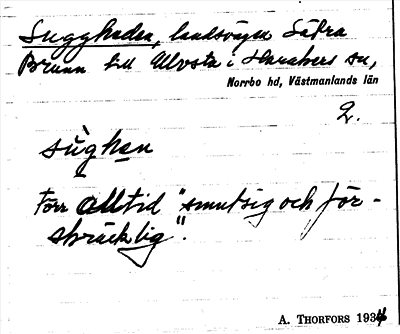 Suggheden, landsvägen Sätra
Brunn till Ulvsta i Haraker sn,
Norrbo hd, Västmanlands län
2.
sùghen
Förr alltid "smutsig och för-
skräcklig".
A. THORFORS 1934